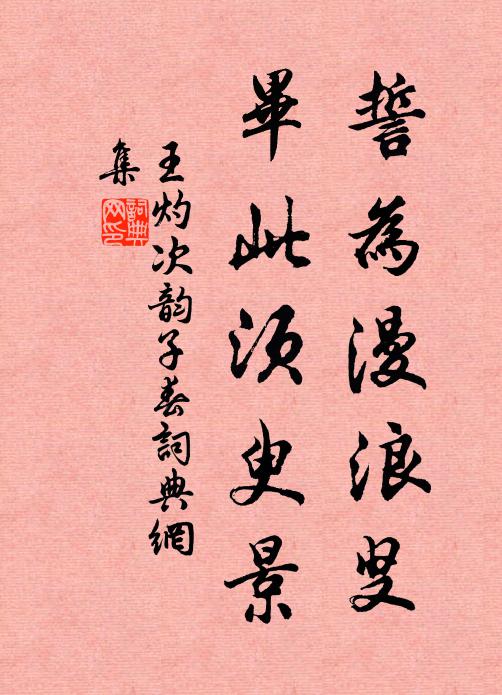 誓為漫浪叟
畢此須臾景
王灼次韵子春詞典網
集
詞典網印